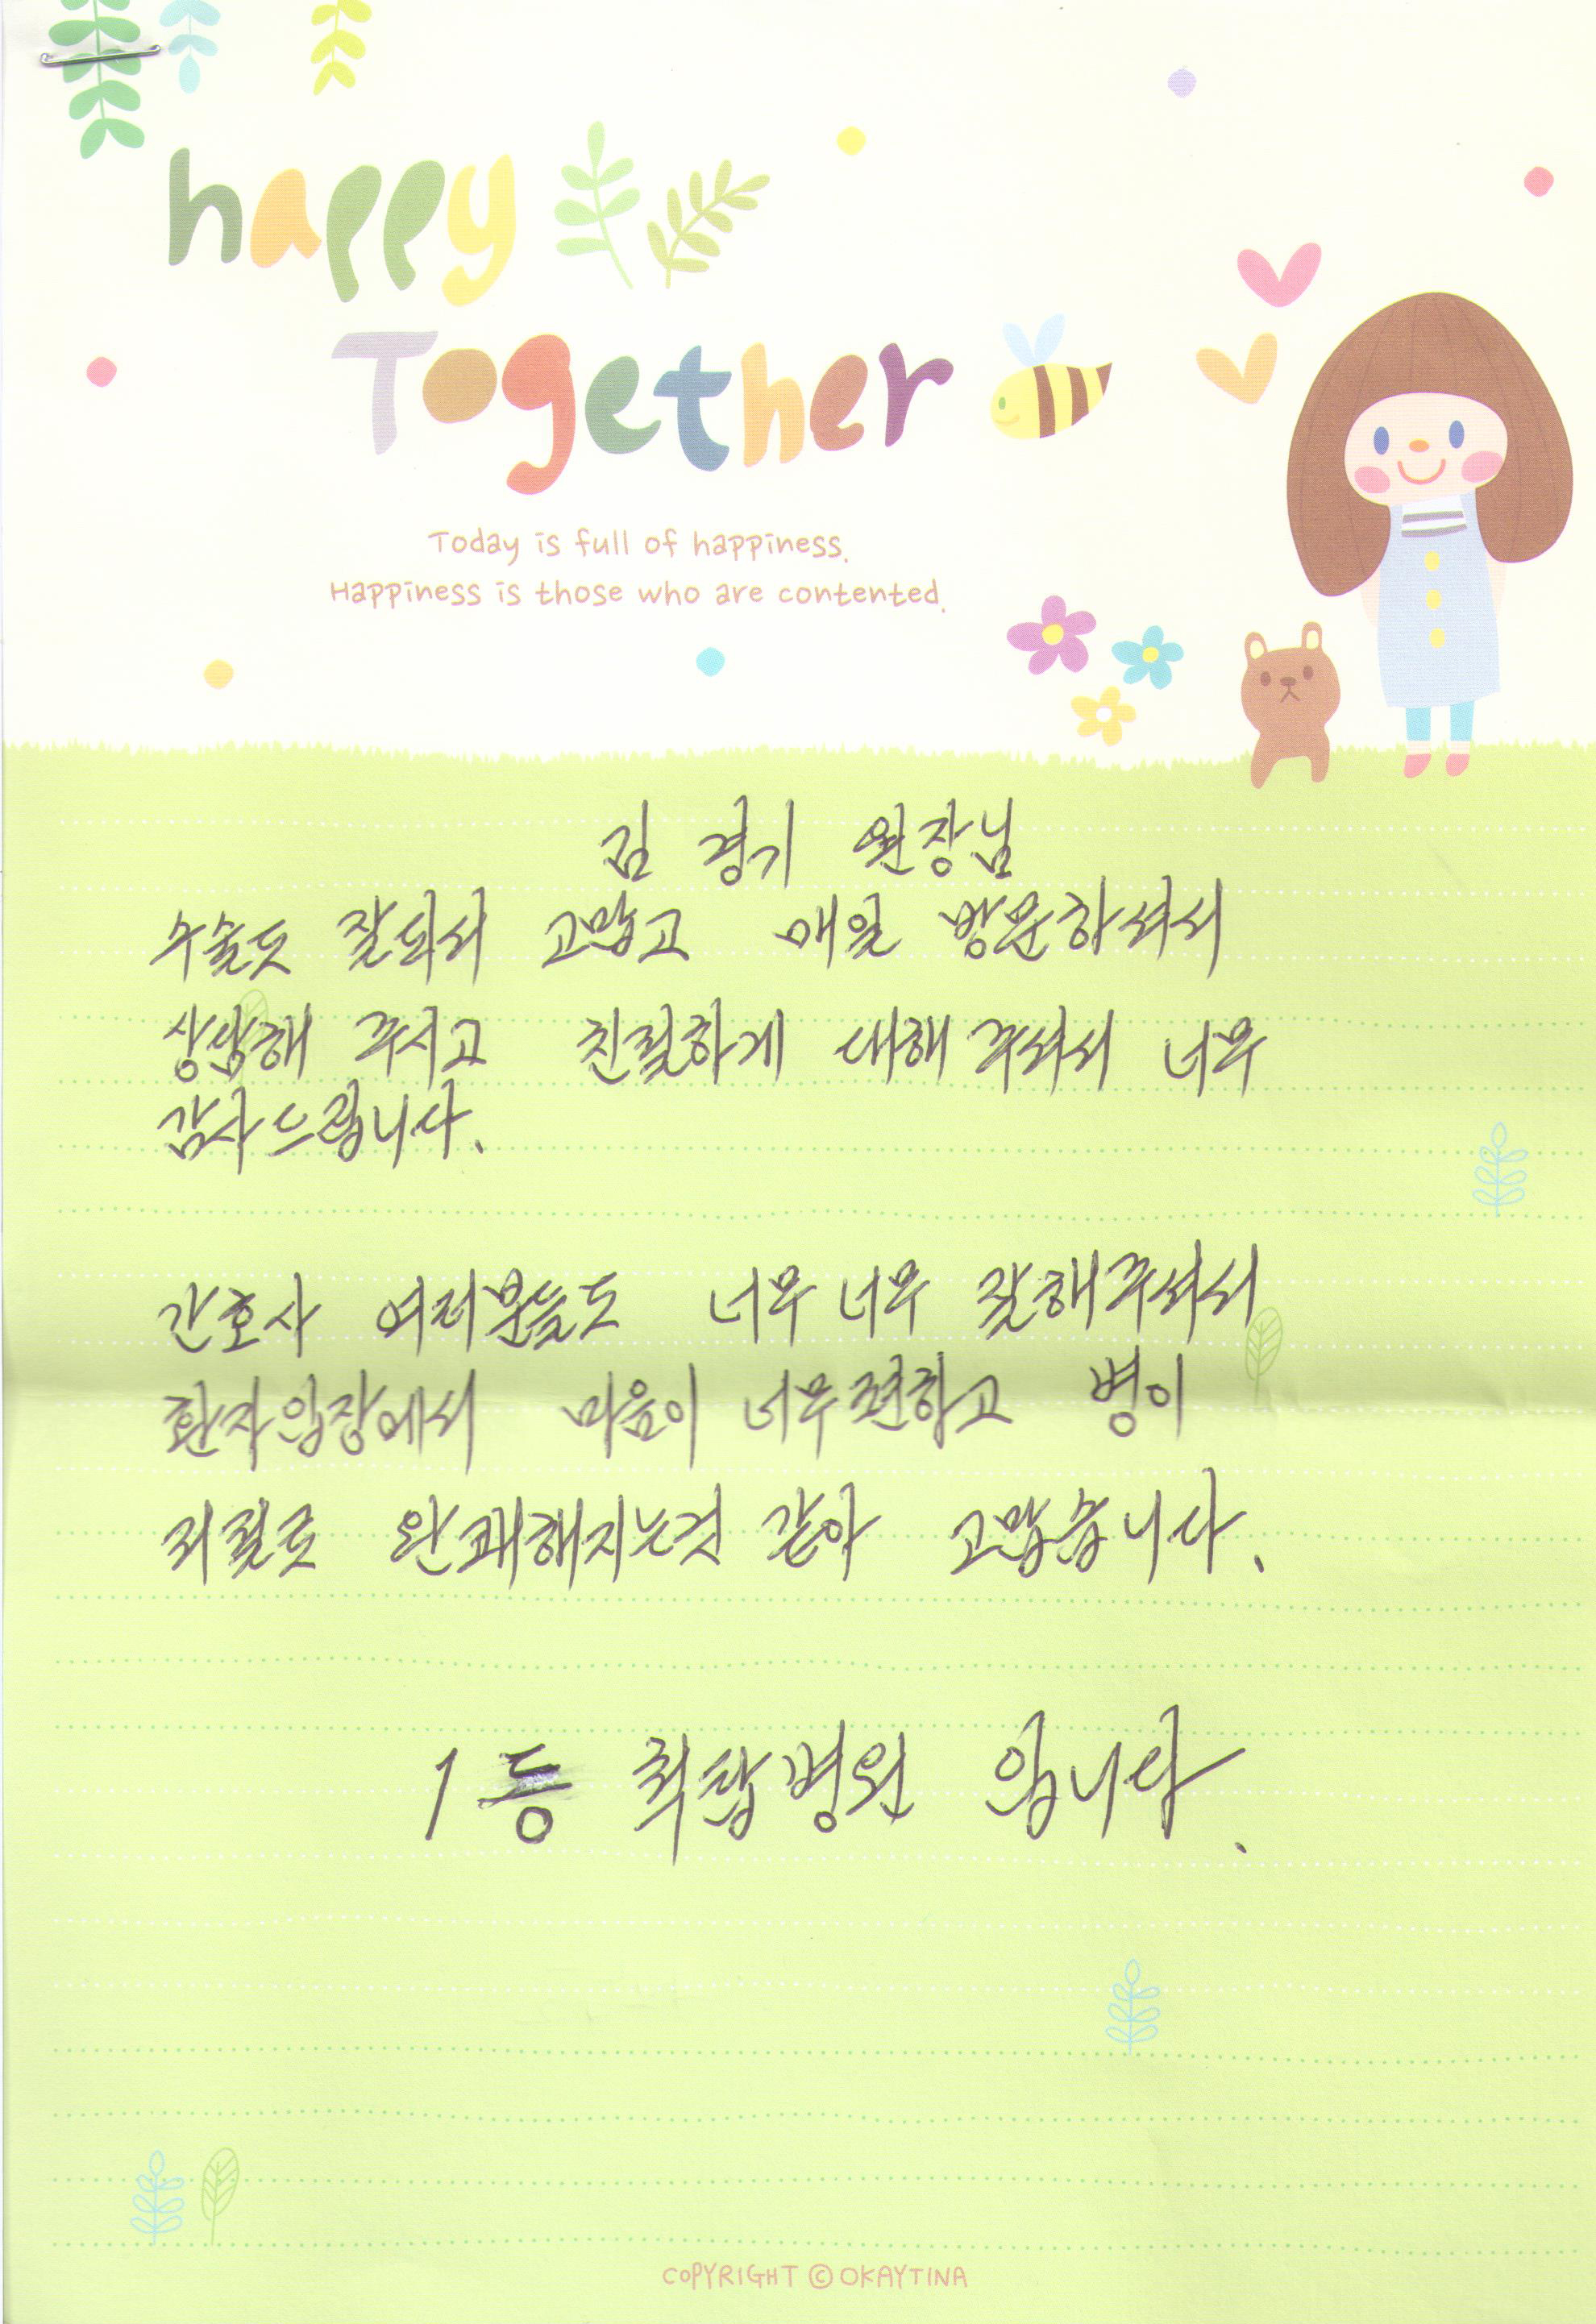 happy
Together
Today is full of happiness.
Happiness is those who are contented.
김 경기 원장님
수술도 잘되서 고맙고 매일 방문하셔서
상담해 주시고 친절하게 대해 주셔서 너무
감사드립니다.
간호사 여러분들도 너무너무 잘해주셔서
환자입장에서 마음이 너무편하고 병이
저절로 완쾌해지는것 같아 고맙습니다.
1등 척탑병원 입니다.
COPYRIGHT © OKAYTINA